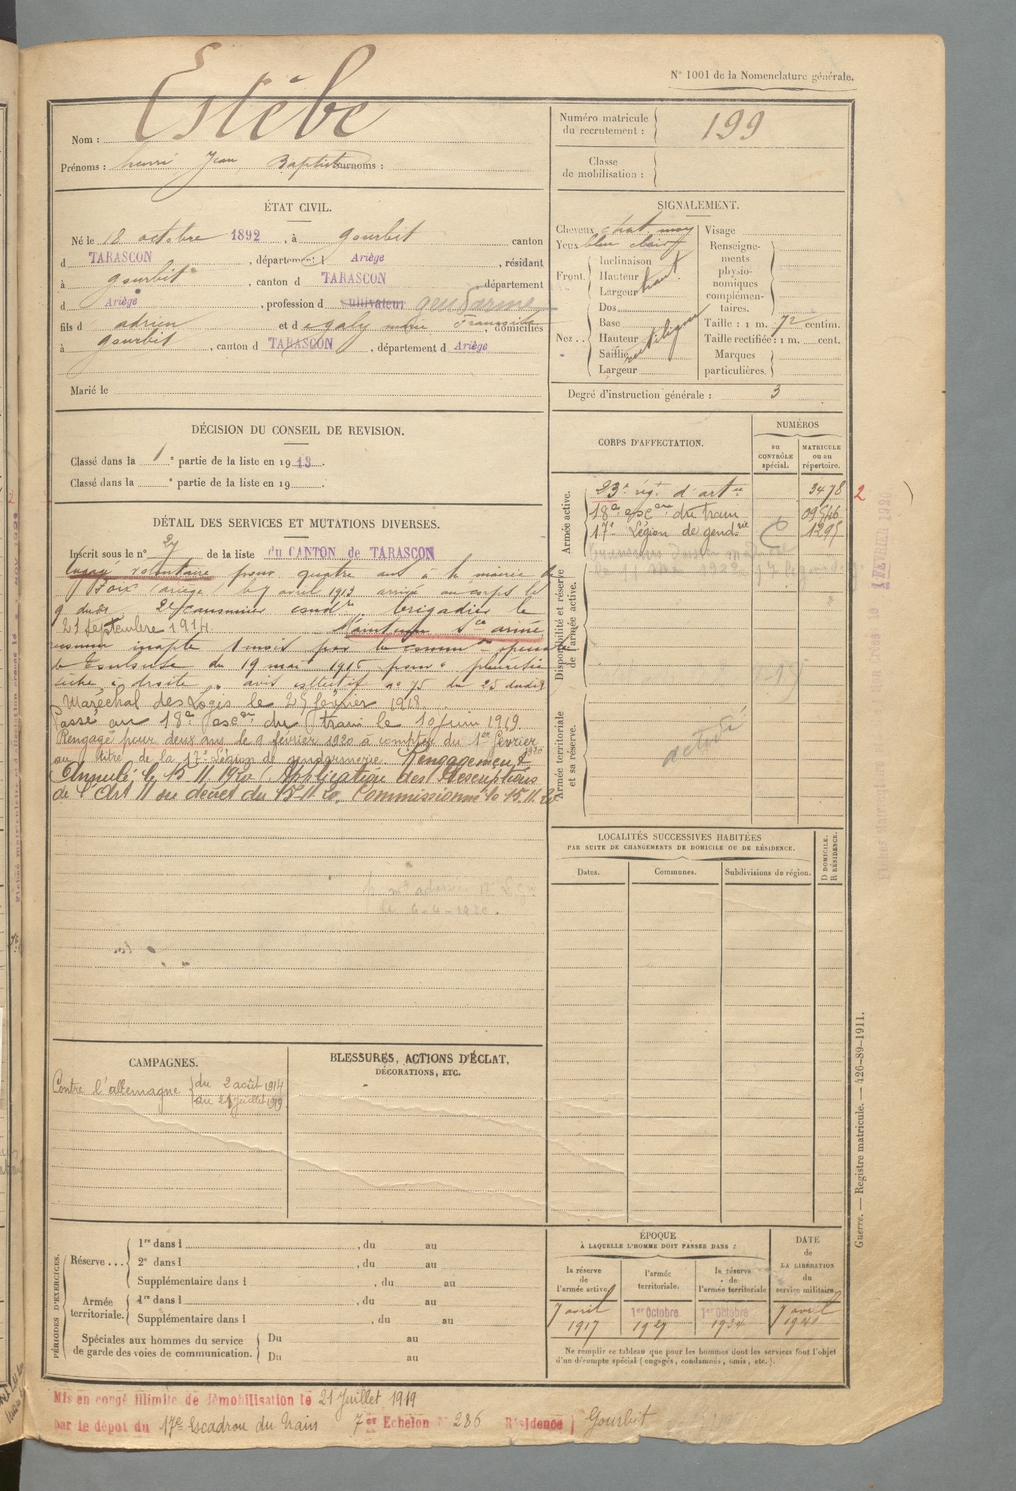 N° 1001 de la Nomenclature générale.
Nom : Estèbe
Prénoms : henri Jean Baptiste surnoms :
Numéro matricule du recrutement : 199
Classe de mobilisation :
ÉTAT CIVIL.
Né le 18 octobre 1892, à gourbit canton
d TARASCON, département Ariège, résidant
à gourbit, canton d TARASCON département
d Ariège, profession d cultivateur gendarme
fils d adrien et d egaly marie Françoise, domiciliés
à gourbit, canton d TARASCON, département d Ariège
Marié le
SIGNALEMENT.
Cheveux chat. moy
Yeux bleu clair
Front. Inclinaison
Hauteur haut
Largeur
Nez.. Dos
Base
Hauteur
Saillie
Largeur
Visage
Renseignements physionomiques complémentaires.
Taille : 1 m. 72 centim.
Taille rectifiée : 1 m. cent.
Marques particulières.
Degré d'instruction générale : 3
DÉCISION DU CONSEIL DE REVISION.
Classé dans la 1e partie de la liste en 1913.
Classé dans la e partie de la liste en 19
DÉTAIL DES SERVICES ET MUTATIONS DIVERSES.
Inscrit sous le n° 27 de la liste du CANTON de TARASCON
Engagé volontaire pour quatre ans à la mairie de
Foix ariège le 7 avril 1913 arrivé au corps le
9 dudit 2e canonnier condr brigadier le
21 septembre 1914. Maintenu Sce armé
inapte 1 mois par la comm
de Toulouse du 19 mai 1915 pour pleurésie
sèche à droite avis collectif n° 75 du 25 dudit
Maréchal des Logis le 25 février 1918.
Passé au 18e Escon du train le 10 juin 1919.
Rengagé pour deux ans le 9 février 1920 à compter du 1er février
1920
au titre de la 17e Légion de gendarmerie. Rengagement
Annulé le 15.11.1920 (Application des Prescriptions
de l'Art 11 du décret du 15.11.20. Commissionné le 15.11.20
CORPS D'AFFECTATION.
NUMÉROS
au CONTRÔLE spécial.
MATRICULE ou au répertoire.
Armée active.
23e régt d'artie 3478
18e escon du train 09546
17e Légion de gendrie 1295
2
Disponibilité et réserve de l'armée active.
Armée territoriale et sa réserve.
LOCALITÉS SUCCESSIVES HABITÉES
PAR SUITE DE CHANGEMENTS DE DOMICILE OU DE RÉSIDENCE.
Dates.
Communes.
Subdivisions de région.
D DOMICILE.
R RÉSIDENCE.
CAMPAGNES.
Contre l'allemagne du 2 août 1914
au 21 juillet 1919
BLESSURES, ACTIONS D'ÉCLAT,
DÉCORATIONS, ETC.
PÉRIODES D'EXERCICES.
Réserve ... 1re dans l , du au
2e dans l , du au
Supplémentaire dans l , du au
Armée territoriale. 1re dans l , du au
Supplémentaire dans l , du au
Spéciales aux hommes du service de garde des voies de communication. Du au
Du au
ÉPOQUE
À LAQUELLE L'HOMME DOIT PASSER DANS :
la réserve de l'armée active
l'armée territoriale.
la réserve de l'armée territoriale
DATE de LA LIBÉRATION du service militaire.
7 avril 1917
1er Octobre 1927
1er Octobre 1934
7 avril
Ne remplir ce tableau que pour les hommes dont les services font l'objet
d'un décompte spécial (engagés, condamnés, omis, etc.).
Guerre. — Registre matricule. — 426-89-1911.
Mis en congé illimité de démobilisation le 21 Juillet 1919
par le dépôt du 17e Escadron du train 7e Echelon N° 286 Résidence Gourbit